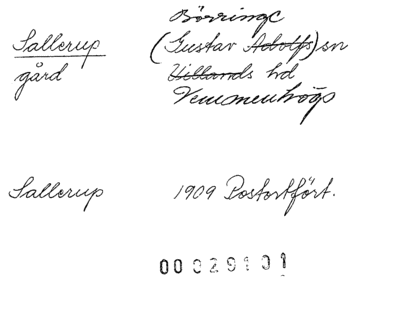 Börringe
Sallerup (Gustav Adolfs) sn
gård Villands hd
Vemmenhögs
Sallerup 1909 Postortfört.
00029101